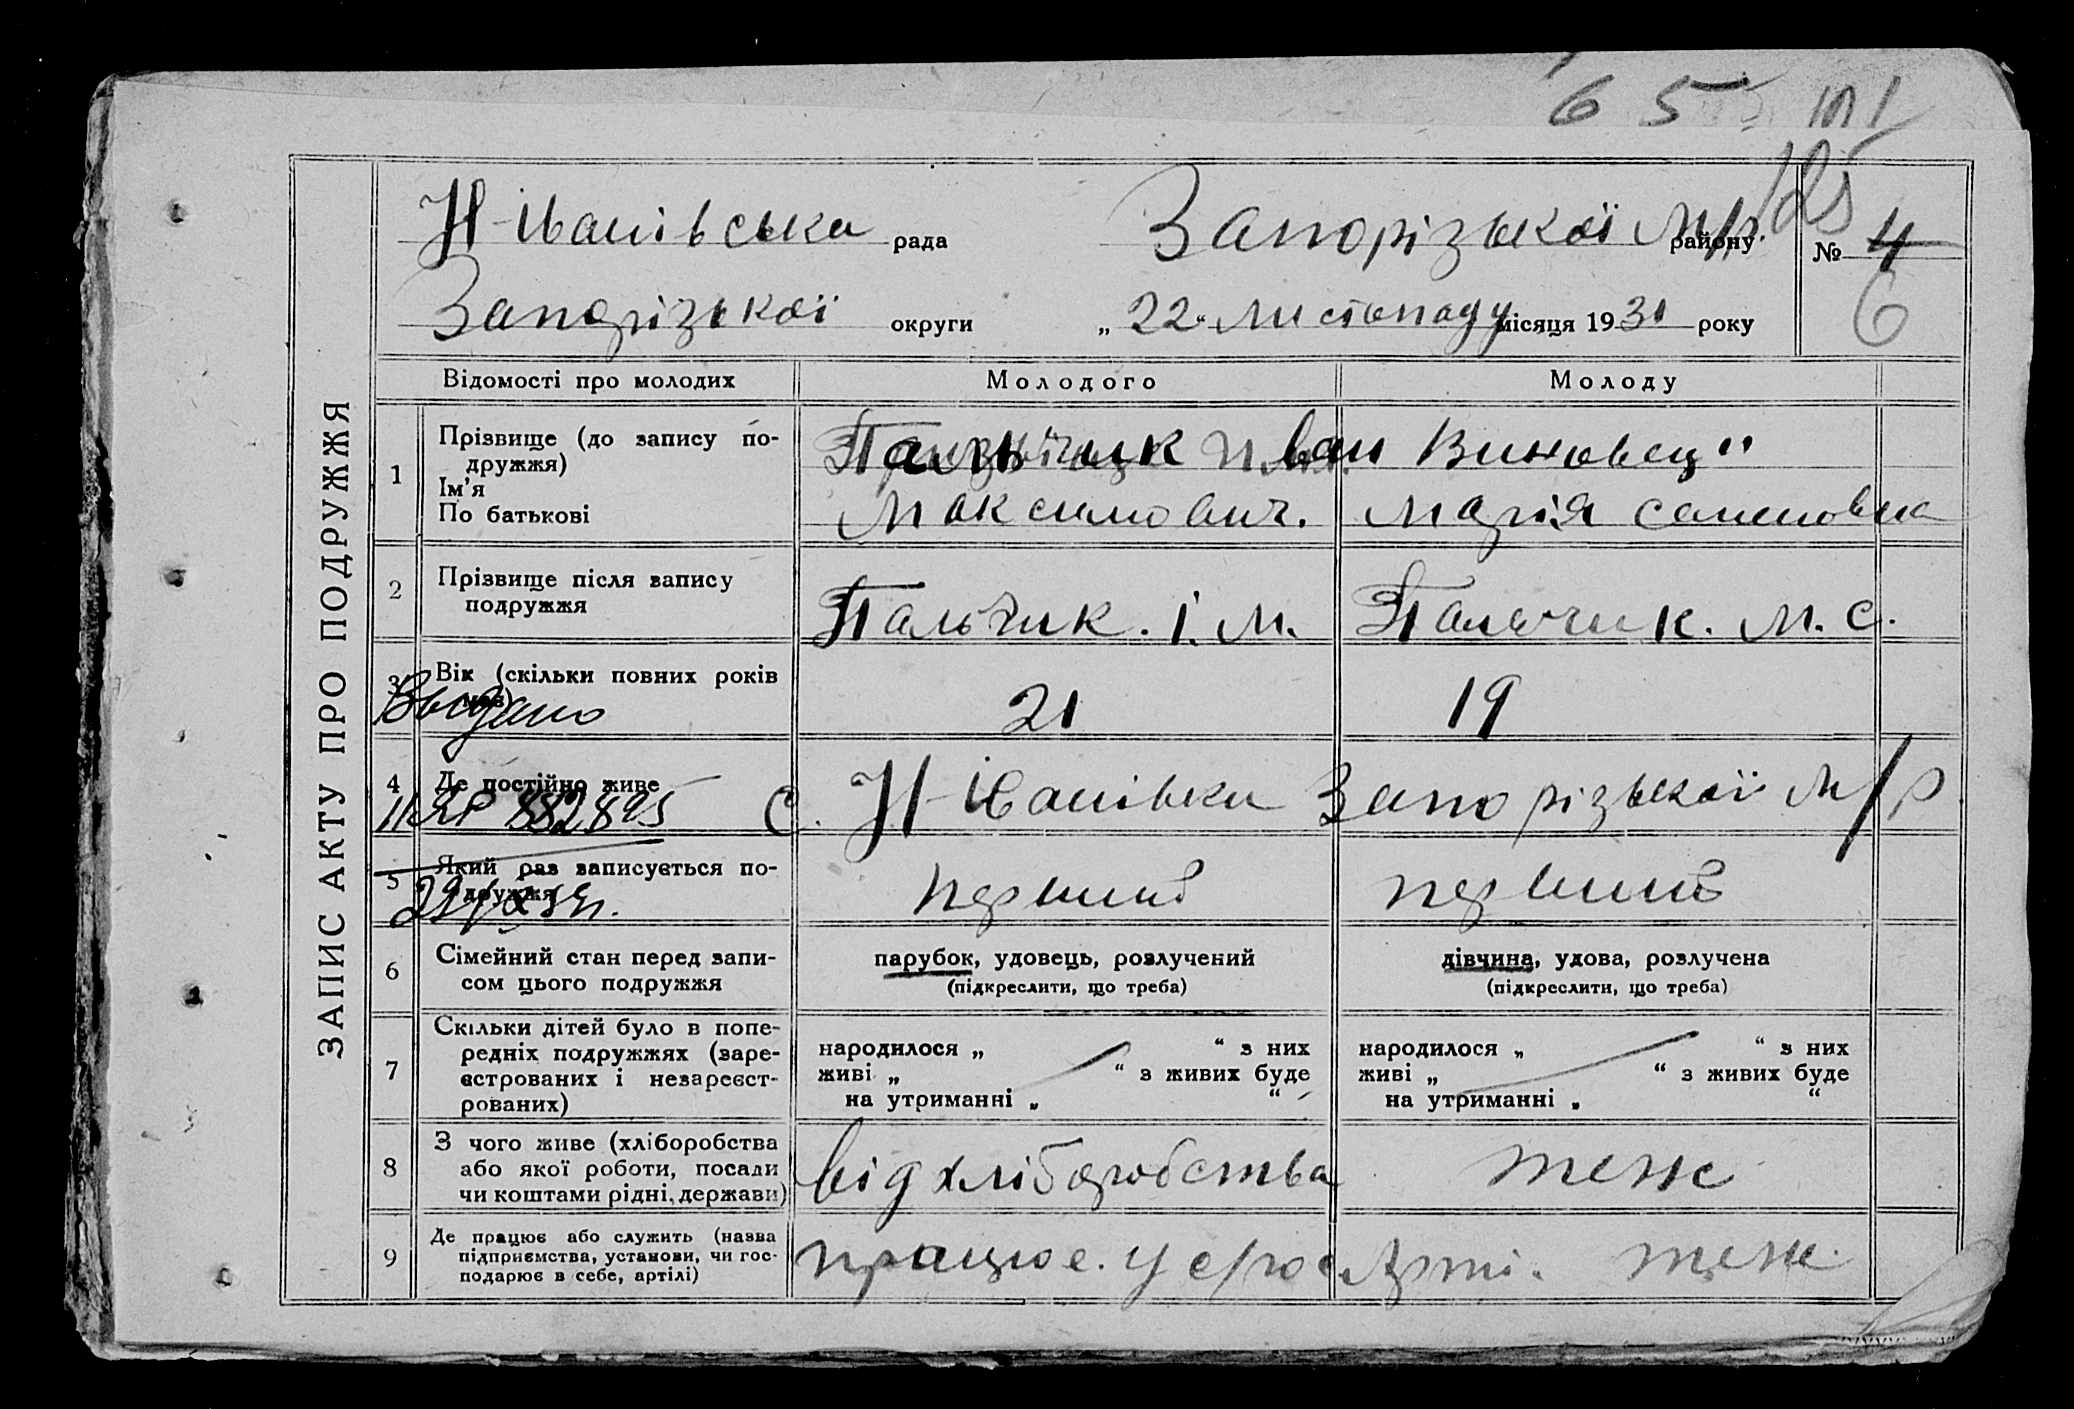 6 5 101
125
Н-Іванівська рада Запорізької м/р. району № 4
Запорізької округи „22“ листопаду місяця 1931 року 6
ЗАПИС АКТУ ПРО ПОДРУЖЖЯ
Відомості про молодих Молодого Молоду
1 Прізвище (до запису по-
дружжя)
Ім’я
По батькові
Пальчик Іван
Максимович.
Виновец
Марія Семеновна
2 Прізвище після запису
подружжя
Пальчик. І. М.
Пальчик. М. С.
3 Вік (скільки повних років
має)
21 19
Выдано
4 Де постійно живе
С. Н-Іванівки Запорізької м/р
II ЯР 882895
5 Який раз записується по-
дружжя
первий первий
6 Сімейний стан перед запи-
сом цього подружжя
парубок, удовець, розлучений
(підкреслити, що треба)
дівчина, удова, розлучена
(підкреслити, що треба)
7 Скільки дітей було в попе-
редніх подружжях (заре-
єстрованих і незареєст-
рованих)
народилося „ “ з них
живі „ “ з живих буде
на утриманні „ “
народилося „ “ з них
живі „ “ з живих буде
на утриманні „ “
8 З чого живе (хліборобства
або якої роботи, посади
чи коштами рідні, держави)
від хліборобства теж
9 Де працює або служить (назва
підприємства, установи, чи гос-
подарює в себе, артілі)
працює. у с/гос Арті. теж.